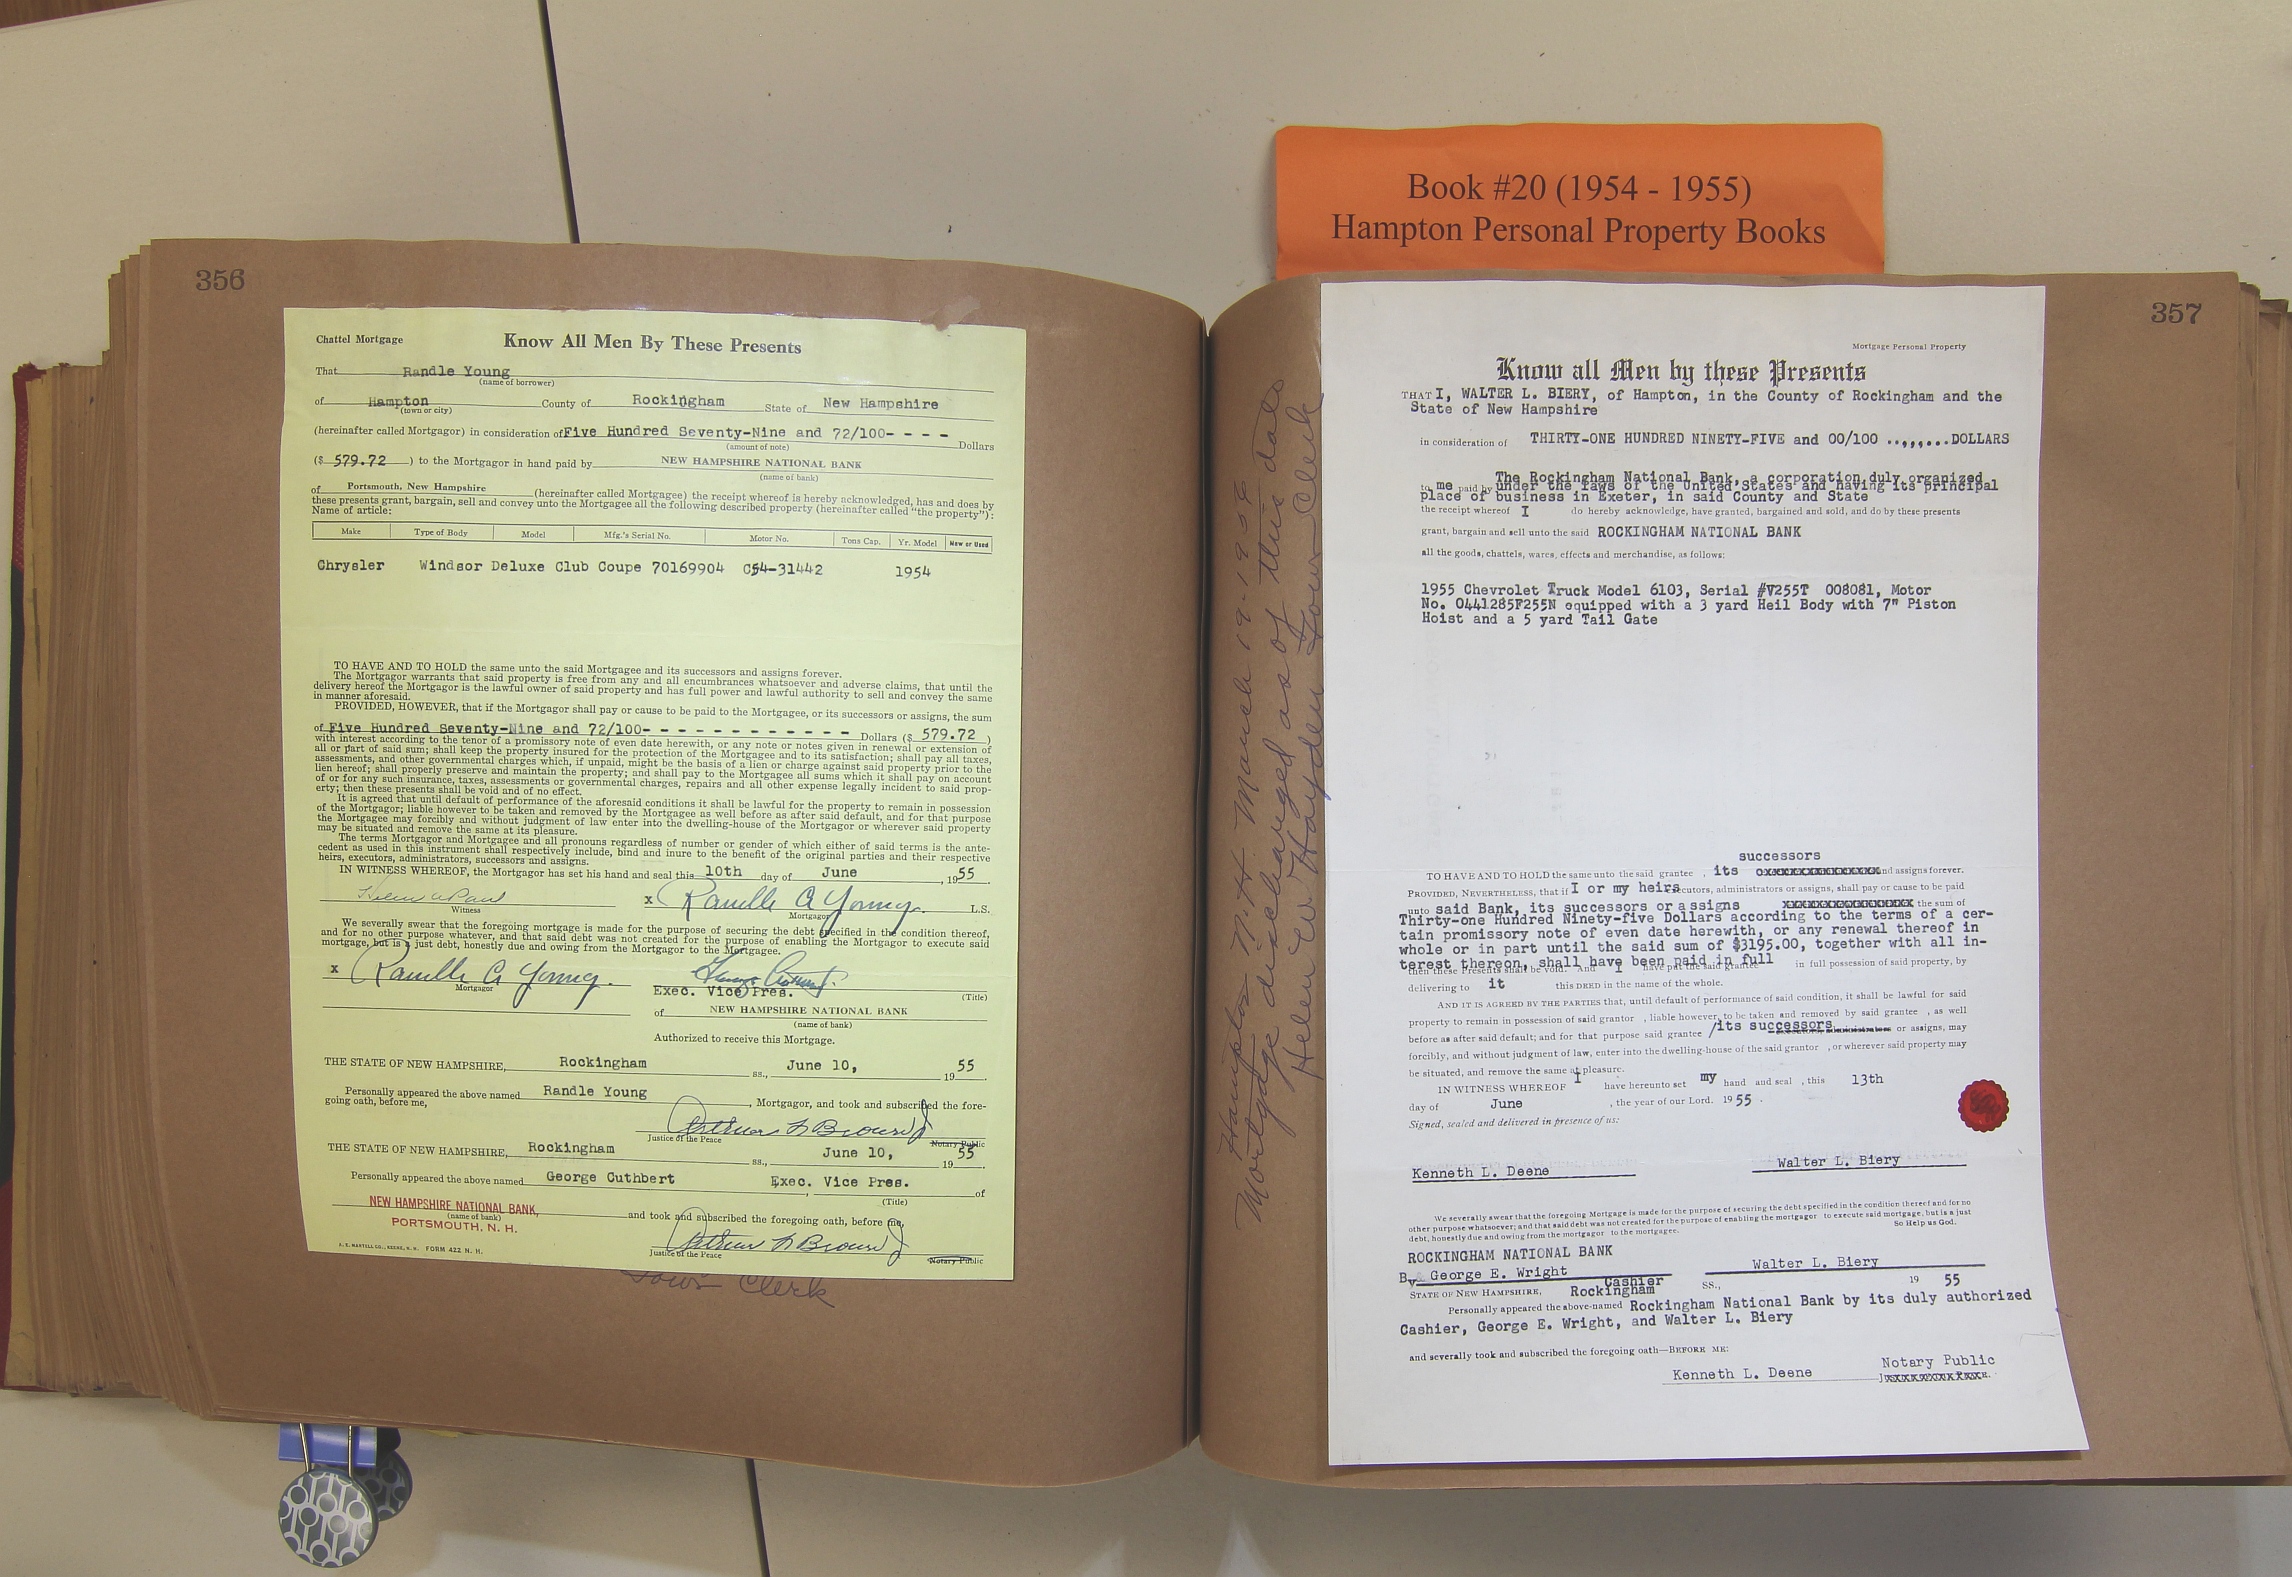 Book #20 (1954 - 1955)
Hampton Personal Property Books
356
Chattel Mortgage
Know All Men By These Presents
That Randle Young
(name of borrower)
of Hampton County of Rockingham State of New Hampshire
(town or city)
(hereinafter called Mortgagor) in consideration of Five Hundred Seventy-Nine and 72/100- - - - Dollars
(amount of note)
($ 579.72 ) to the Mortgagor in hand paid by NEW HAMPSHIRE NATIONAL BANK
(name of bank)
of Portsmouth, New Hampshire (hereinafter called Mortgagee) the receipt whereof is hereby acknowledged, has and does by
these presents grant, bargain, sell and convey unto the Mortgagee all the following described property (hereinafter called "the property"):
Name of article:
Make Type of Body Model Mfg.'s Serial No. Motor No. Tons Cap. Yr. Model New or Used
Chrysler Windsor Deluxe Club Coupe 70169904 C54-31442 1954
TO HAVE AND TO HOLD the same unto the said Mortgagee and its successors and assigns forever.
The Mortgagor warrants that said property is free from any and all encumbrances whatsoever and adverse claims, that until the
delivery hereof the Mortgagor is the lawful owner of said property and has full power and lawful authority to sell and convey the same
in manner aforesaid.
PROVIDED, HOWEVER, that if the Mortgagor shall pay or cause to be paid to the Mortgagee, or its successors or assigns, the sum
of Five Hundred Seventy-Nine and 72/100- - - - - - - - - - - - Dollars ($ 579.72 )
with interest according to the tenor of a promissory note of even date herewith, or any note or notes given in renewal or extension of
all or part of said sum; shall keep the property insured for the protection of the Mortgagee and to its satisfaction; shall pay all taxes,
assessments, and other governmental charges which, if unpaid, might be the basis of a lien or charge against said property prior to the
lien hereof; shall properly preserve and maintain the property; and shall pay to the Mortgagee all sums which it shall pay on account
of or for any such insurance, taxes, assessments or governmental charges, repairs and all other expense legally incident to said prop-
erty; then these presents shall be void and of no effect.
It is agreed that until default of performance of the aforesaid conditions it shall be lawful for the property to remain in possession
of the Mortgagor; liable however to be taken and removed by the Mortgagee as well before as after said default, and for that purpose
the Mortgagee may forcibly and without judgment of law enter into the dwelling-house of the Mortgagor or wherever said property
may be situated and remove the same at its pleasure.
The terms Mortgagor and Mortgagee and all pronouns regardless of number or gender of which either of said terms is the ante-
cedent as used in this instrument shall respectively include, bind and inure to the benefit of the original parties and their respective
heirs, executors, administrators, successors and assigns.
IN WITNESS WHEREOF, the Mortgagor has set his hand and seal this 10th day of June , 1955.
x Randle A Young. L.S.
Witness Mortgagor
We severally swear that the foregoing mortgage is made for the purpose of securing the debt specified in the condition thereof,
and for no other purpose whatever, and that said debt was not created for the purpose of enabling the Mortgagor to execute said
mortgage, but is a just debt, honestly due and owing from the Mortgagor to the Mortgagee.
x Randle A Young.
Mortgagor
Exec. Vice Pres. (Title)
of NEW HAMPSHIRE NATIONAL BANK
(name of bank)
Authorized to receive this Mortgage.
THE STATE OF NEW HAMPSHIRE, Rockingham ss., June 10, 1955.
Personally appeared the above named Randle Young , Mortgagor, and took and subscribed the fore-
going oath, before me,
Justice of the Peace Notary Public
THE STATE OF NEW HAMPSHIRE, Rockingham ss., June 10, 1955.
Personally appeared the above named George Cuthbert , Exec. Vice Pres. of
(Title)
NEW HAMPSHIRE NATIONAL BANK, and took and subscribed the foregoing oath, before me,
(name of bank)
PORTSMOUTH, N. H.
Justice of the Peace Notary Public
FORM 422 N. H.
Town Clerk
Hampton N.H. March 19-1958
Mortgage discharged as of this date
Helen W Hayden Town Clerk
357
Mortgage Personal Property
Know all Men by these Presents
THAT I, WALTER L. BIERY, of Hampton, in the County of Rockingham and the
State of New Hampshire
in consideration of THIRTY-ONE HUNDRED NINETY-FIVE and 00/100 ..,,,...DOLLARS
The Rockingham National Bank, a corporation duly organized
to me paid by under the laws of the United States and having its principal
place of business in Exeter, in said County and State
the receipt whereof I do hereby acknowledge, have granted, bargained and sold, and do by these presents
grant, bargain and sell unto the said ROCKINGHAM NATIONAL BANK
all the goods, chattels, wares, effects and merchandise, as follows:
1955 Chevrolet Truck Model 6103, Serial #V255T 008081, Motor
No. 0441285F255N equipped with a 3 yard Heil Body with 7" Piston
Hoist and a 5 yard Tail Gate
successors
TO HAVE AND TO HOLD the same unto the said grantee , its and assigns forever.
PROVIDED, NEVERTHELESS, that if I or my heirs executors, administrators or assigns, shall pay or cause to be paid
unto said Bank, its successors or assigns the sum of
Thirty-one Hundred Ninety-five Dollars according to the terms of a cer-
tain promissory note of even date herewith, or any renewal thereof in
whole or in part until the said sum of $3195.00, together with all in-
terest thereon, shall have been paid in full
then these Presents shall be void. And I have put the said grantee in full possession of said property, by
delivering to it this DEED in the name of the whole.
AND IT IS AGREED BY THE PARTIES that, until default of performance of said condition, it shall be lawful for said
property to remain in possession of said grantor , liable however, to be taken and removed by said grantee , as well
before as after said default; and for that purpose said grantee /its successors executors, administrators or assigns, may
forcibly, and without judgment of law, enter into the dwelling-house of the said grantor , or wherever said property may
be situated, and remove the same at pleasure.
IN WITNESS WHEREOF I have hereunto set my hand and seal , this 13th
day of June , the year of our Lord. 1955 .
Signed, sealed and delivered in presence of us:
Kenneth L. Deene Walter L. Biery
We severally swear that the foregoing Mortgage is made for the purpose of securing the debt specified in the condition thereof and for no
other purpose whatsoever; and that said debt was not created for the purpose of enabling the mortgagor to execute said mortgage, but is a just
debt, honestly due and owing from the mortgagor to the mortgagee. So Help us God.
ROCKINGHAM NATIONAL BANK
By George E. Wright Walter L. Biery
Cashier
STATE OF NEW HAMPSHIRE, Rockingham SS., 19 55
Personally appeared the above-named Rockingham National Bank by its duly authorized
Cashier, George E. Wright, and Walter L. Biery
and severally took and subscribed the foregoing oath—BEFORE ME:
Kenneth L. Deene Notary Public